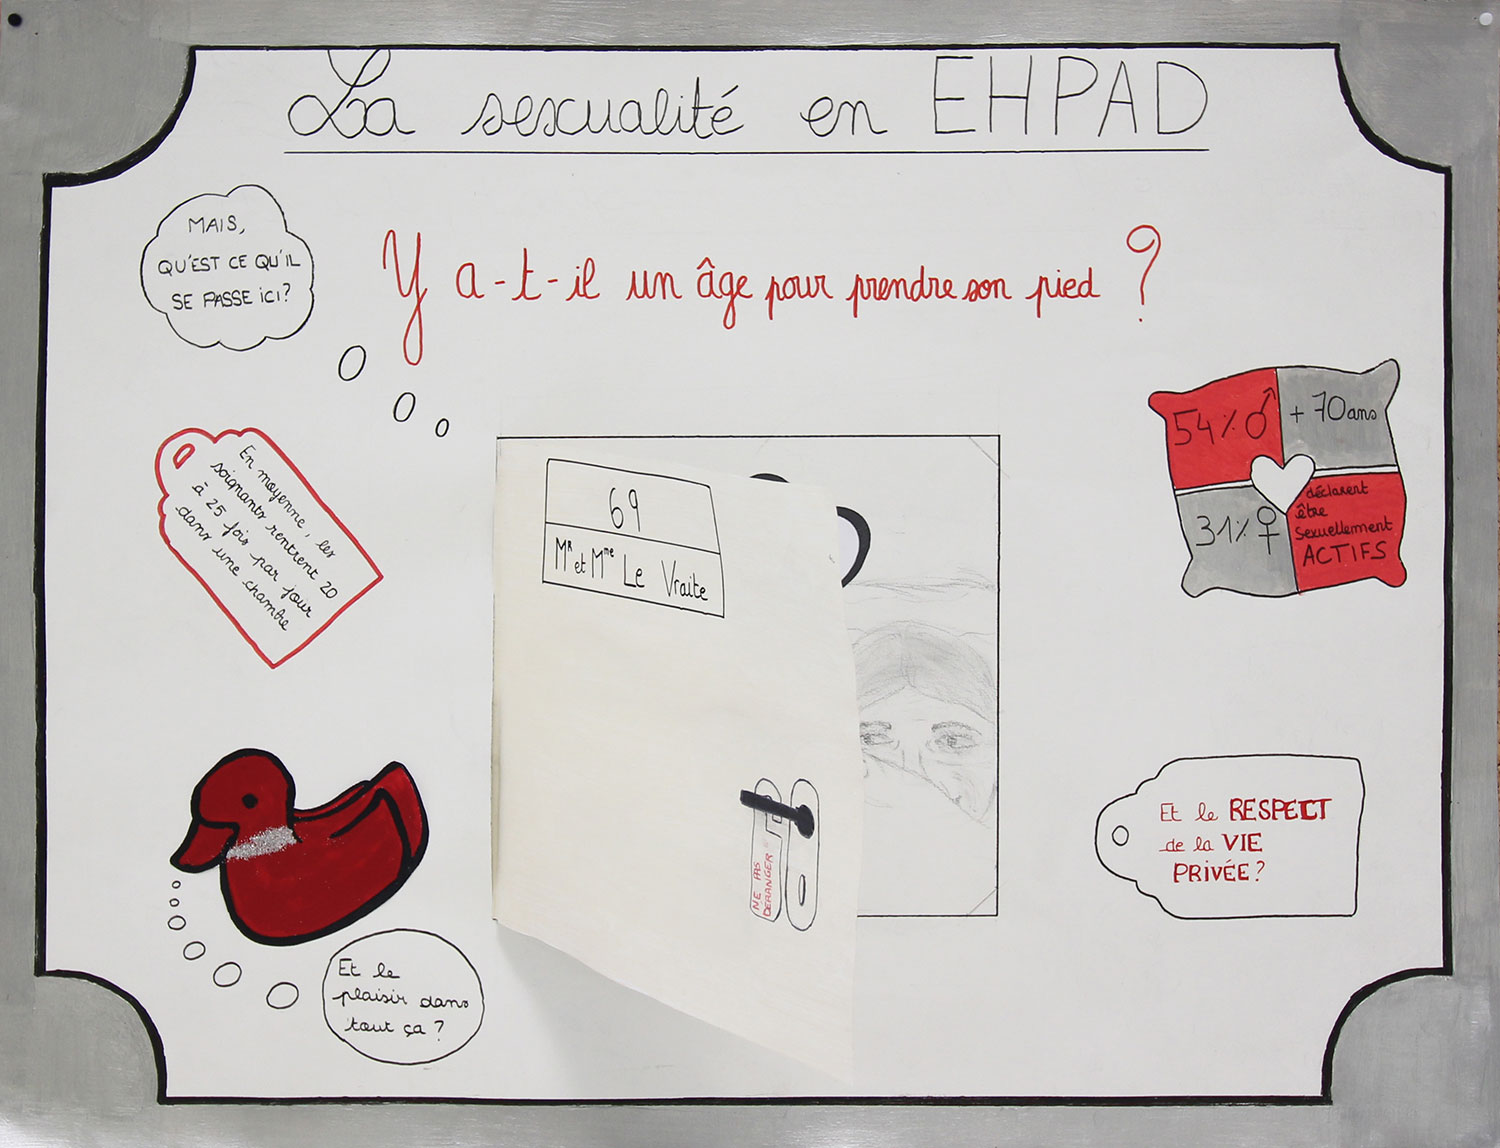 La sexualité en EHPAD
MAIS,
QU'EST CE QU'IL
SE PASSE ICI?
Y a-t-il un âge pour prendre son pied ?
En moyenne, les
soignants rentrent 20
à 25 fois par jour
dans une chambre
54% ♂
+ 70 ans
31% ♀
déclarent
être
sexuellement
ACTIFS
69
Mr et Mme Le Vraite
NE PAS
DERANGER
Et le RESPECT
de la VIE
PRIVÉE?
Et le
plaisir dans
tout ça ?